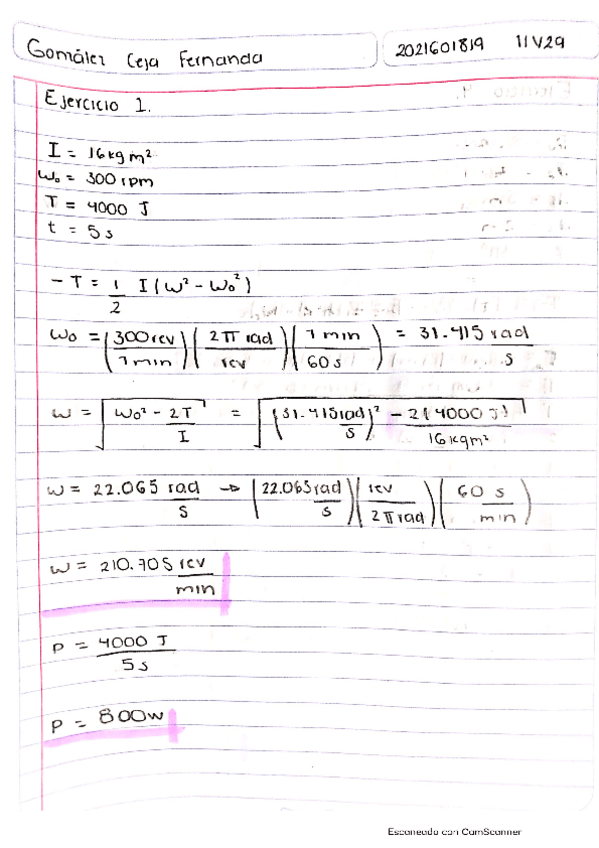 González Ceja Fernanda
2021601819 11V29
Ejercicio 1.
I = 16kg m²
ω₀ = 300 rpm
T = 4000 J
t = 5 s
- T = 1/2 I (ω² - ω₀²)
ω₀ = (300 rev / 1 min) (2π rad / rev) (1 min / 60 s) = 31.415 rad / s
ω = √(ω₀² - 2T / I) = √((31.415 rad / s)² - 2(4000 J) / 16kgm²)
ω = 22.065 rad / s → (22.065 rad / s) (rev / 2π rad) (60 s / min)
ω = 210.705 rev / min
P = 4000 J / 5 s
P = 800w
Escaneado con CamScanner